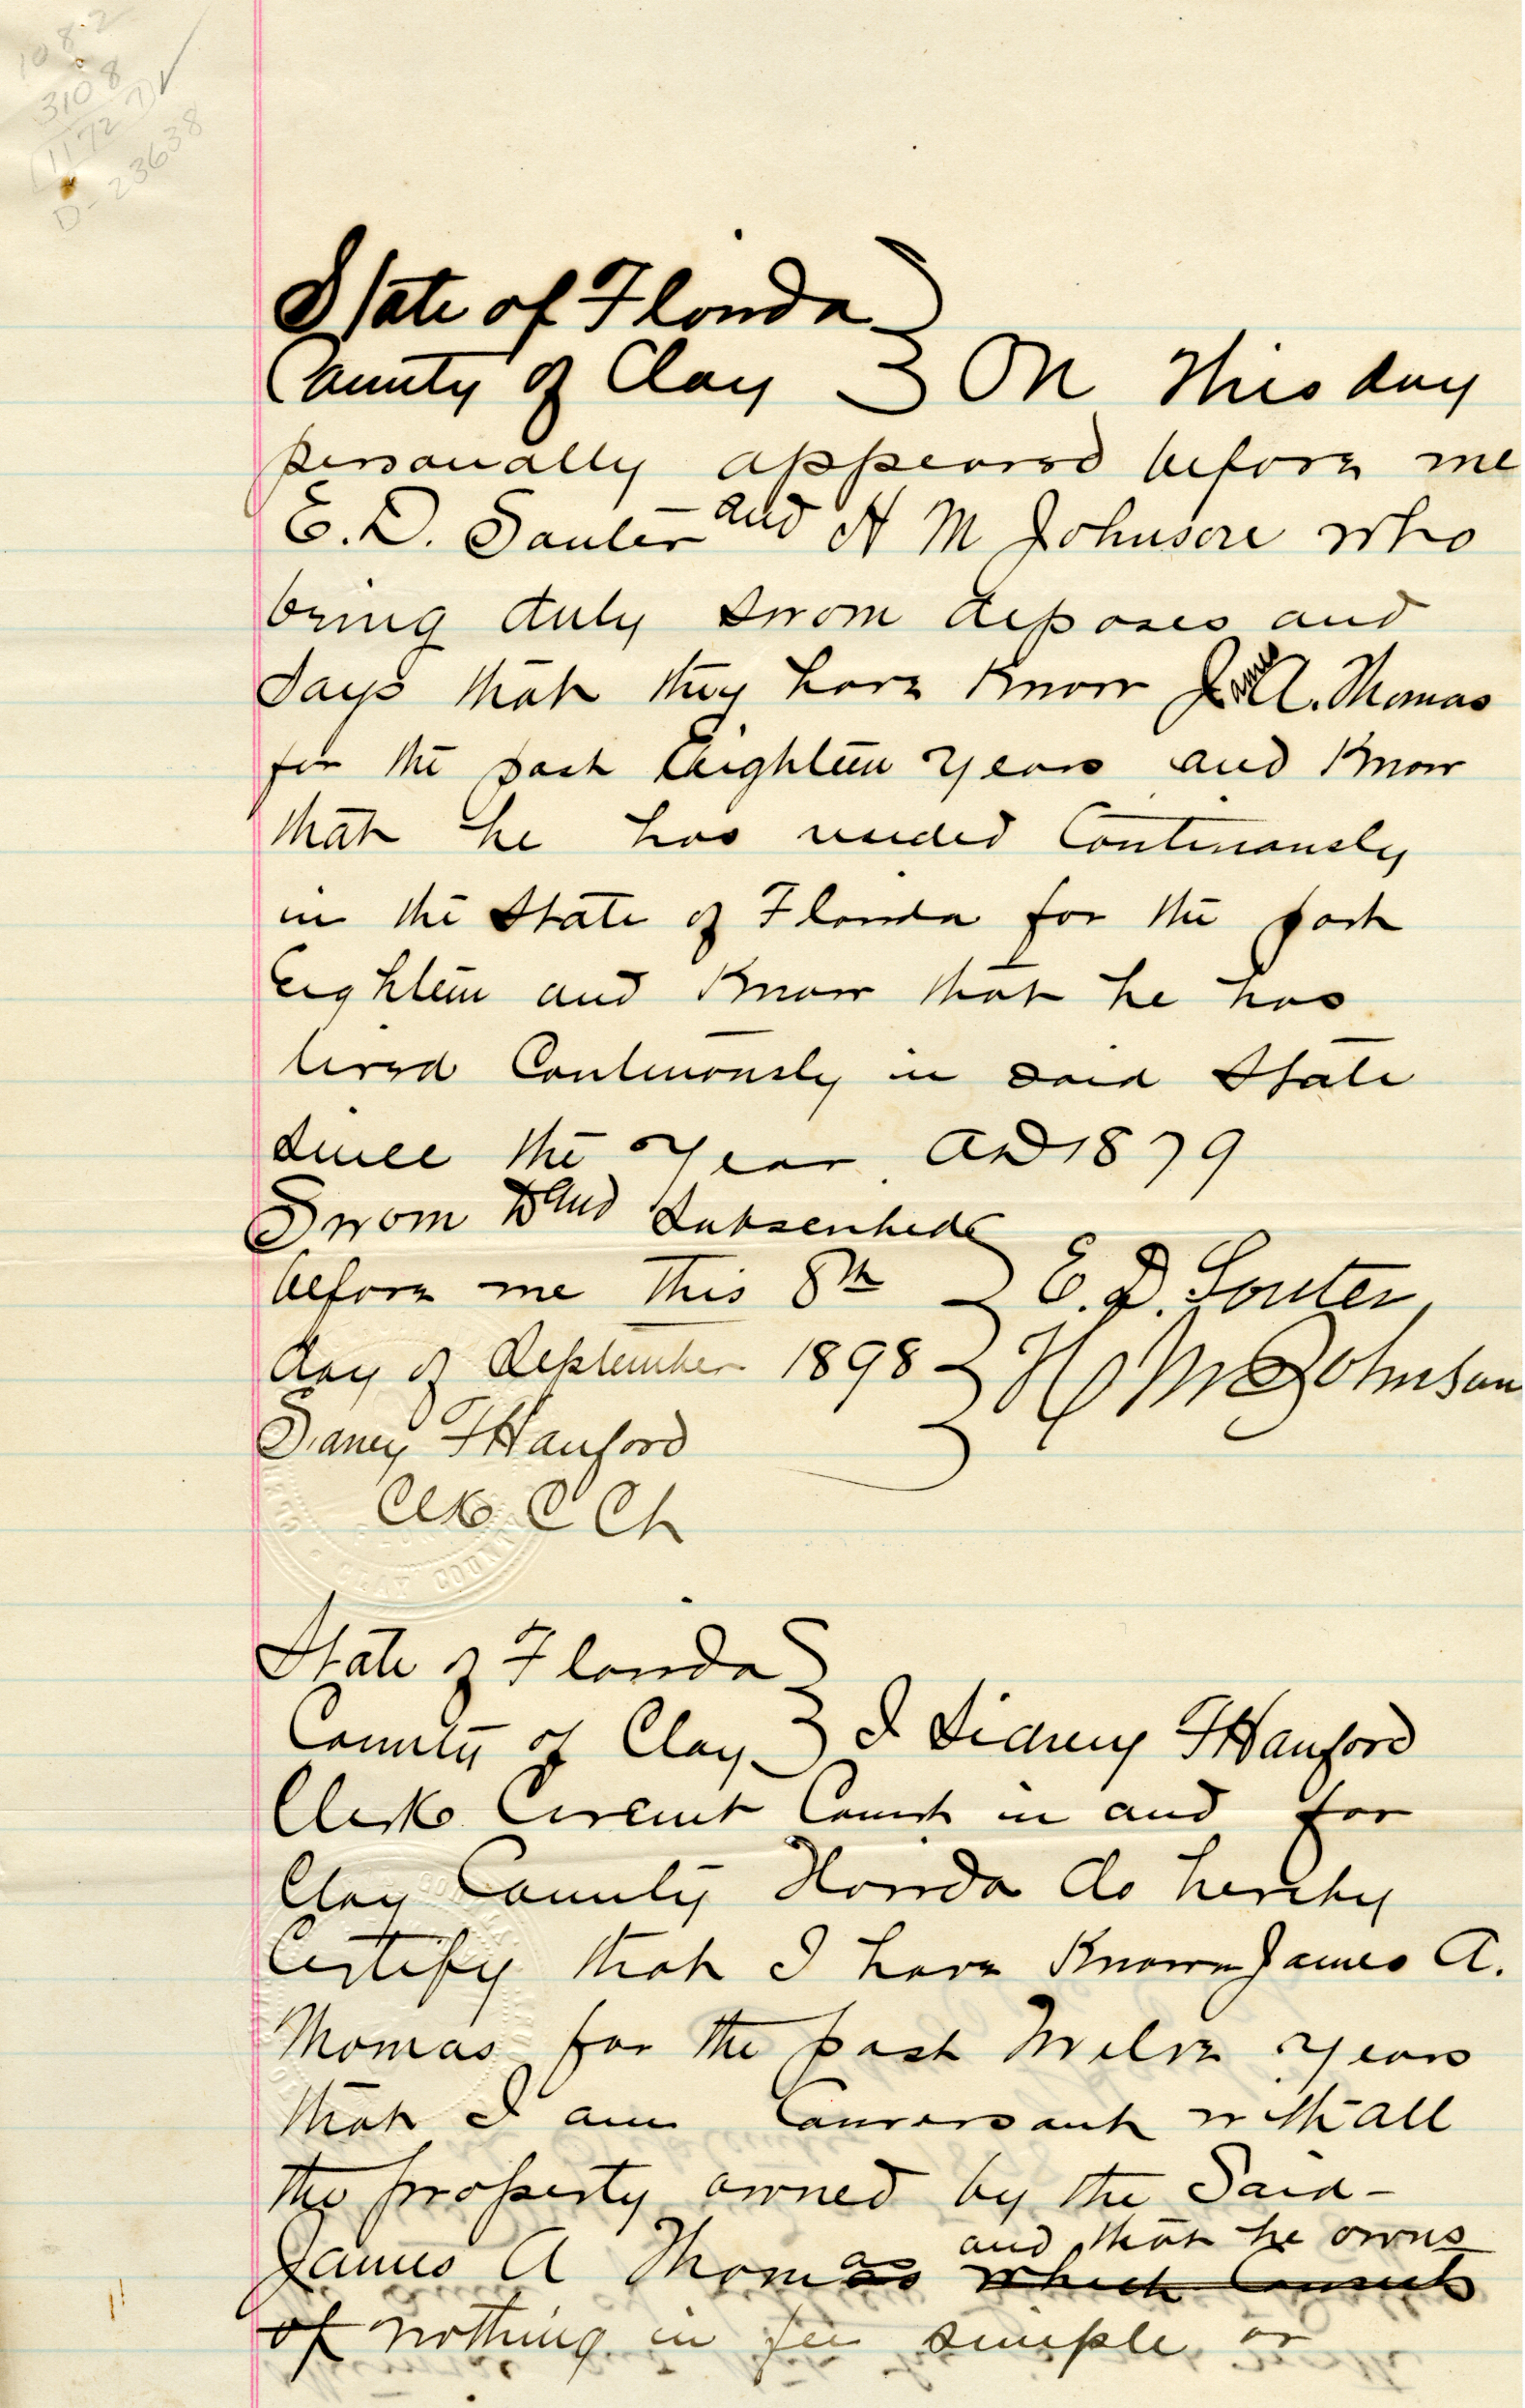 108.2
3108
(11727) ✓
D-23638
State of Florida
County of Clay } On this day
personally appeared before me
E. D. Souter and H M Johnson who
being duly sworn deposes and
says that they have know James A. Thomas
for the past Eighteen years and know
that he has resided Continuously
in the State of Florida for the past
Eighteen and know that he has
lived Continuously in said State
since the year AD 1879
Sworn to and Subscribed
before me this 8th } E. D. Souter
day of September 1898 } H M Johnson
Sidney F Hanford
Clk C Ct
CLAY COUNTY
State of Florida
County of Clay } I Sidney F Hanford
Clerk Circuit Court in and for
Clay County Florida do hereby
Certify that I have Known James A.
Thomas for the past Twelve years
that I am Conversant with all
the property owned by the Said -
James A Thomas and that he owns
which Consists
of nothing in fee simple or